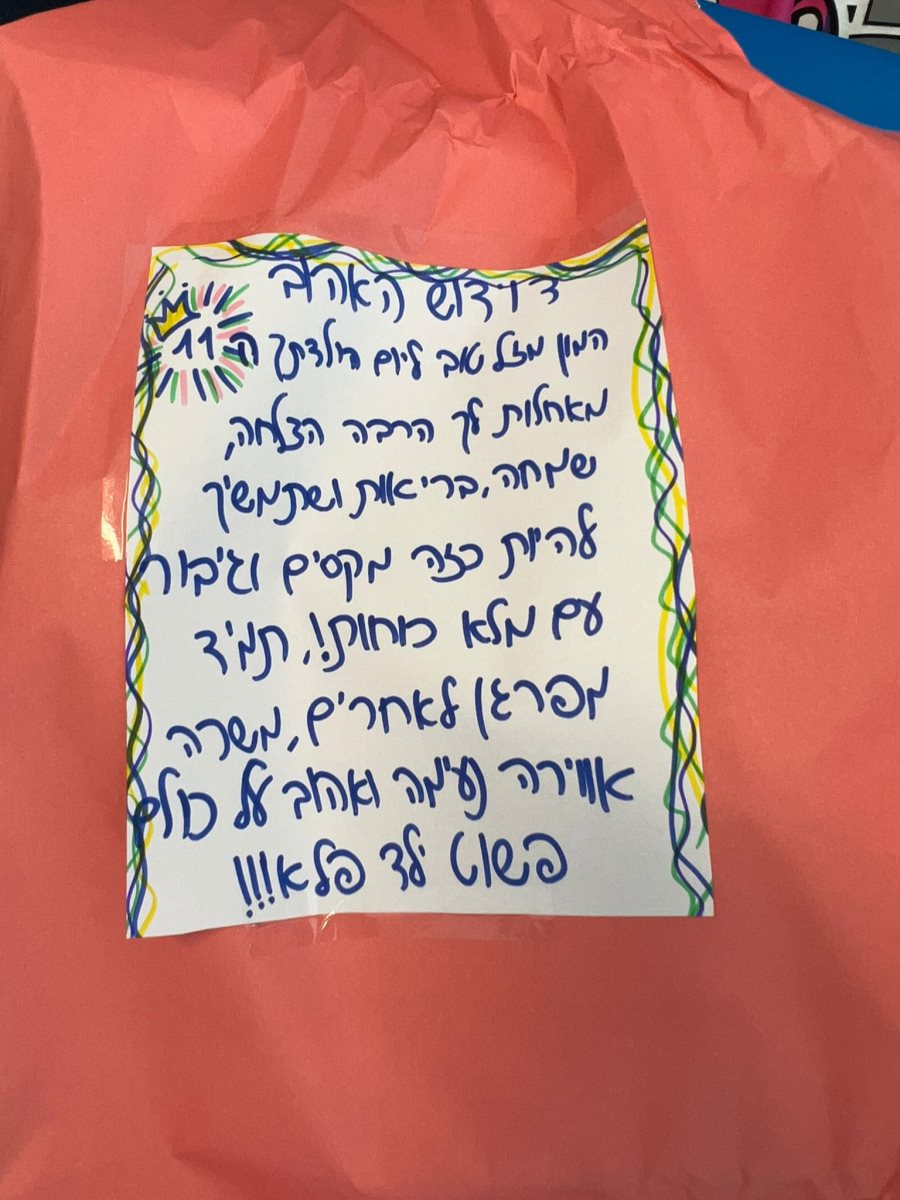 דוידוש האהוב
המון מזל טוב ליום הולדתך ה 11
מאחלות לך הרבה הצלחה,
שמחה, בריאות ושתמשיך
להיות כזה מקסים וגיבור
עם מלא כוחות!, תמיד
מפרגן לאחרים, משרה
אווירה נעימה ואהוב על כולם
פשוט ילד פלא!!!